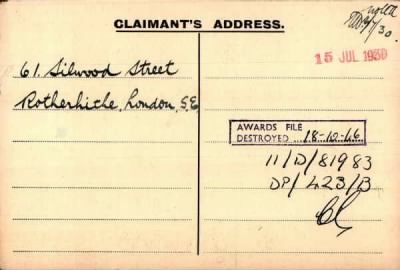 CLAIMANT'S ADDRESS.
15 JUL 1930
61. Silwood Street
Rotherhithe, London, S.E.
AWARDS FILE
DESTROYED 18-10-46
11/D/81983
DP/423/B